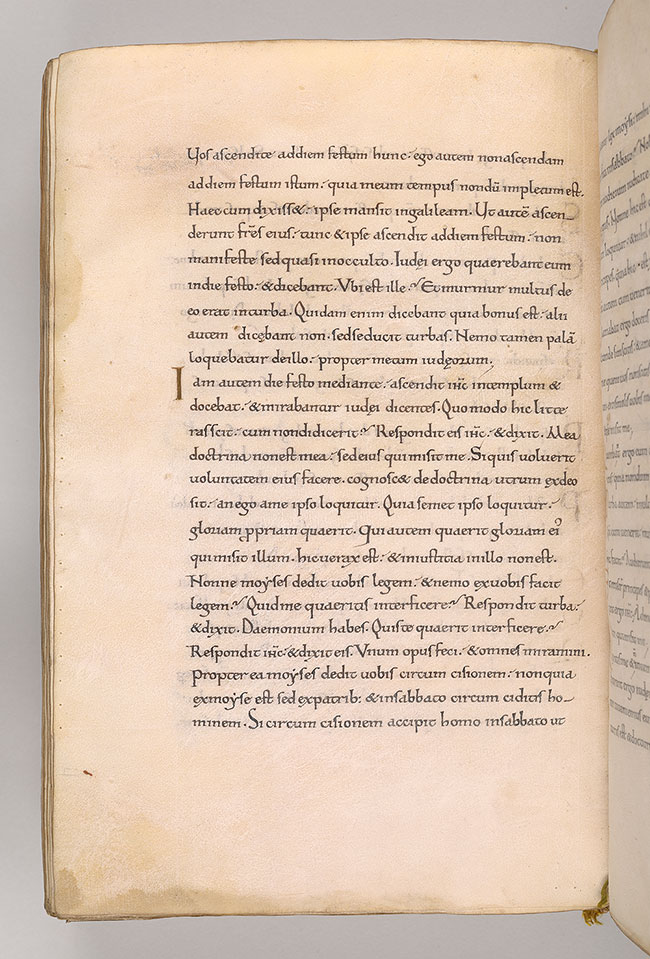 Uos ascendite addiem festum hunc· ego autem nonascendam
addiem festum istum· quia meum tempus nondū impletum est.
Haec cum dixiss&· ipse mansit ingalileam. Ut autē ascen-
derunt fr̄es eius· tunc & ipse ascendit addiem festum· non
manifeste sed quasi inocculto. Iudei ergo quaerebant eum
indie festo· & dicebant. Vbi est ille? Et murmur multus de
eo erat inturba. Quidam enim dicebant quia bonus est· alii
autem dicebant non. sed seducit turbas. Nemo tamen palā
loquebatur deillo· propter metum iudęorum.
Iam autem die festo mediante· ascendit ihc̄ intemplum &
docebat· & mirabantur iudęi dicentes. Quo modo hic litte
ras scit· cum nondidicerit? Respondit eis ihc̄· & dixit. Mea
doctrina non est mea· sed eius qui misit me. Si quis voluerit
voluntatem eius facere. cognosc& de doctrina utrum exdeo
sit· an ego ame ipso loquitur. Quia semet ipso loquitur·
gloriam ꝓpriam quaerit. Qui autem quaerit gloriam ei᾽
qui misit illum. hic uerax est· & iniustitia inillo non est.
Nonne moyses dedit uobis legem· & nemo exuobis facit
legem? Quid me quaeritis interficere? Respondit turba·
& dixit. Daemonium habes. Quis te quaerit interficere?
Respondit ihc̄· & dixit eis. Vnum opus feci· & omnes miramini.
Propter ea moyses dedit uobis circum cisionem· non quia
exmoyse est sed expatrib:· & insabbato circum ciditis ho-
minem. Si circum cisionem accipit homo insabbato ut